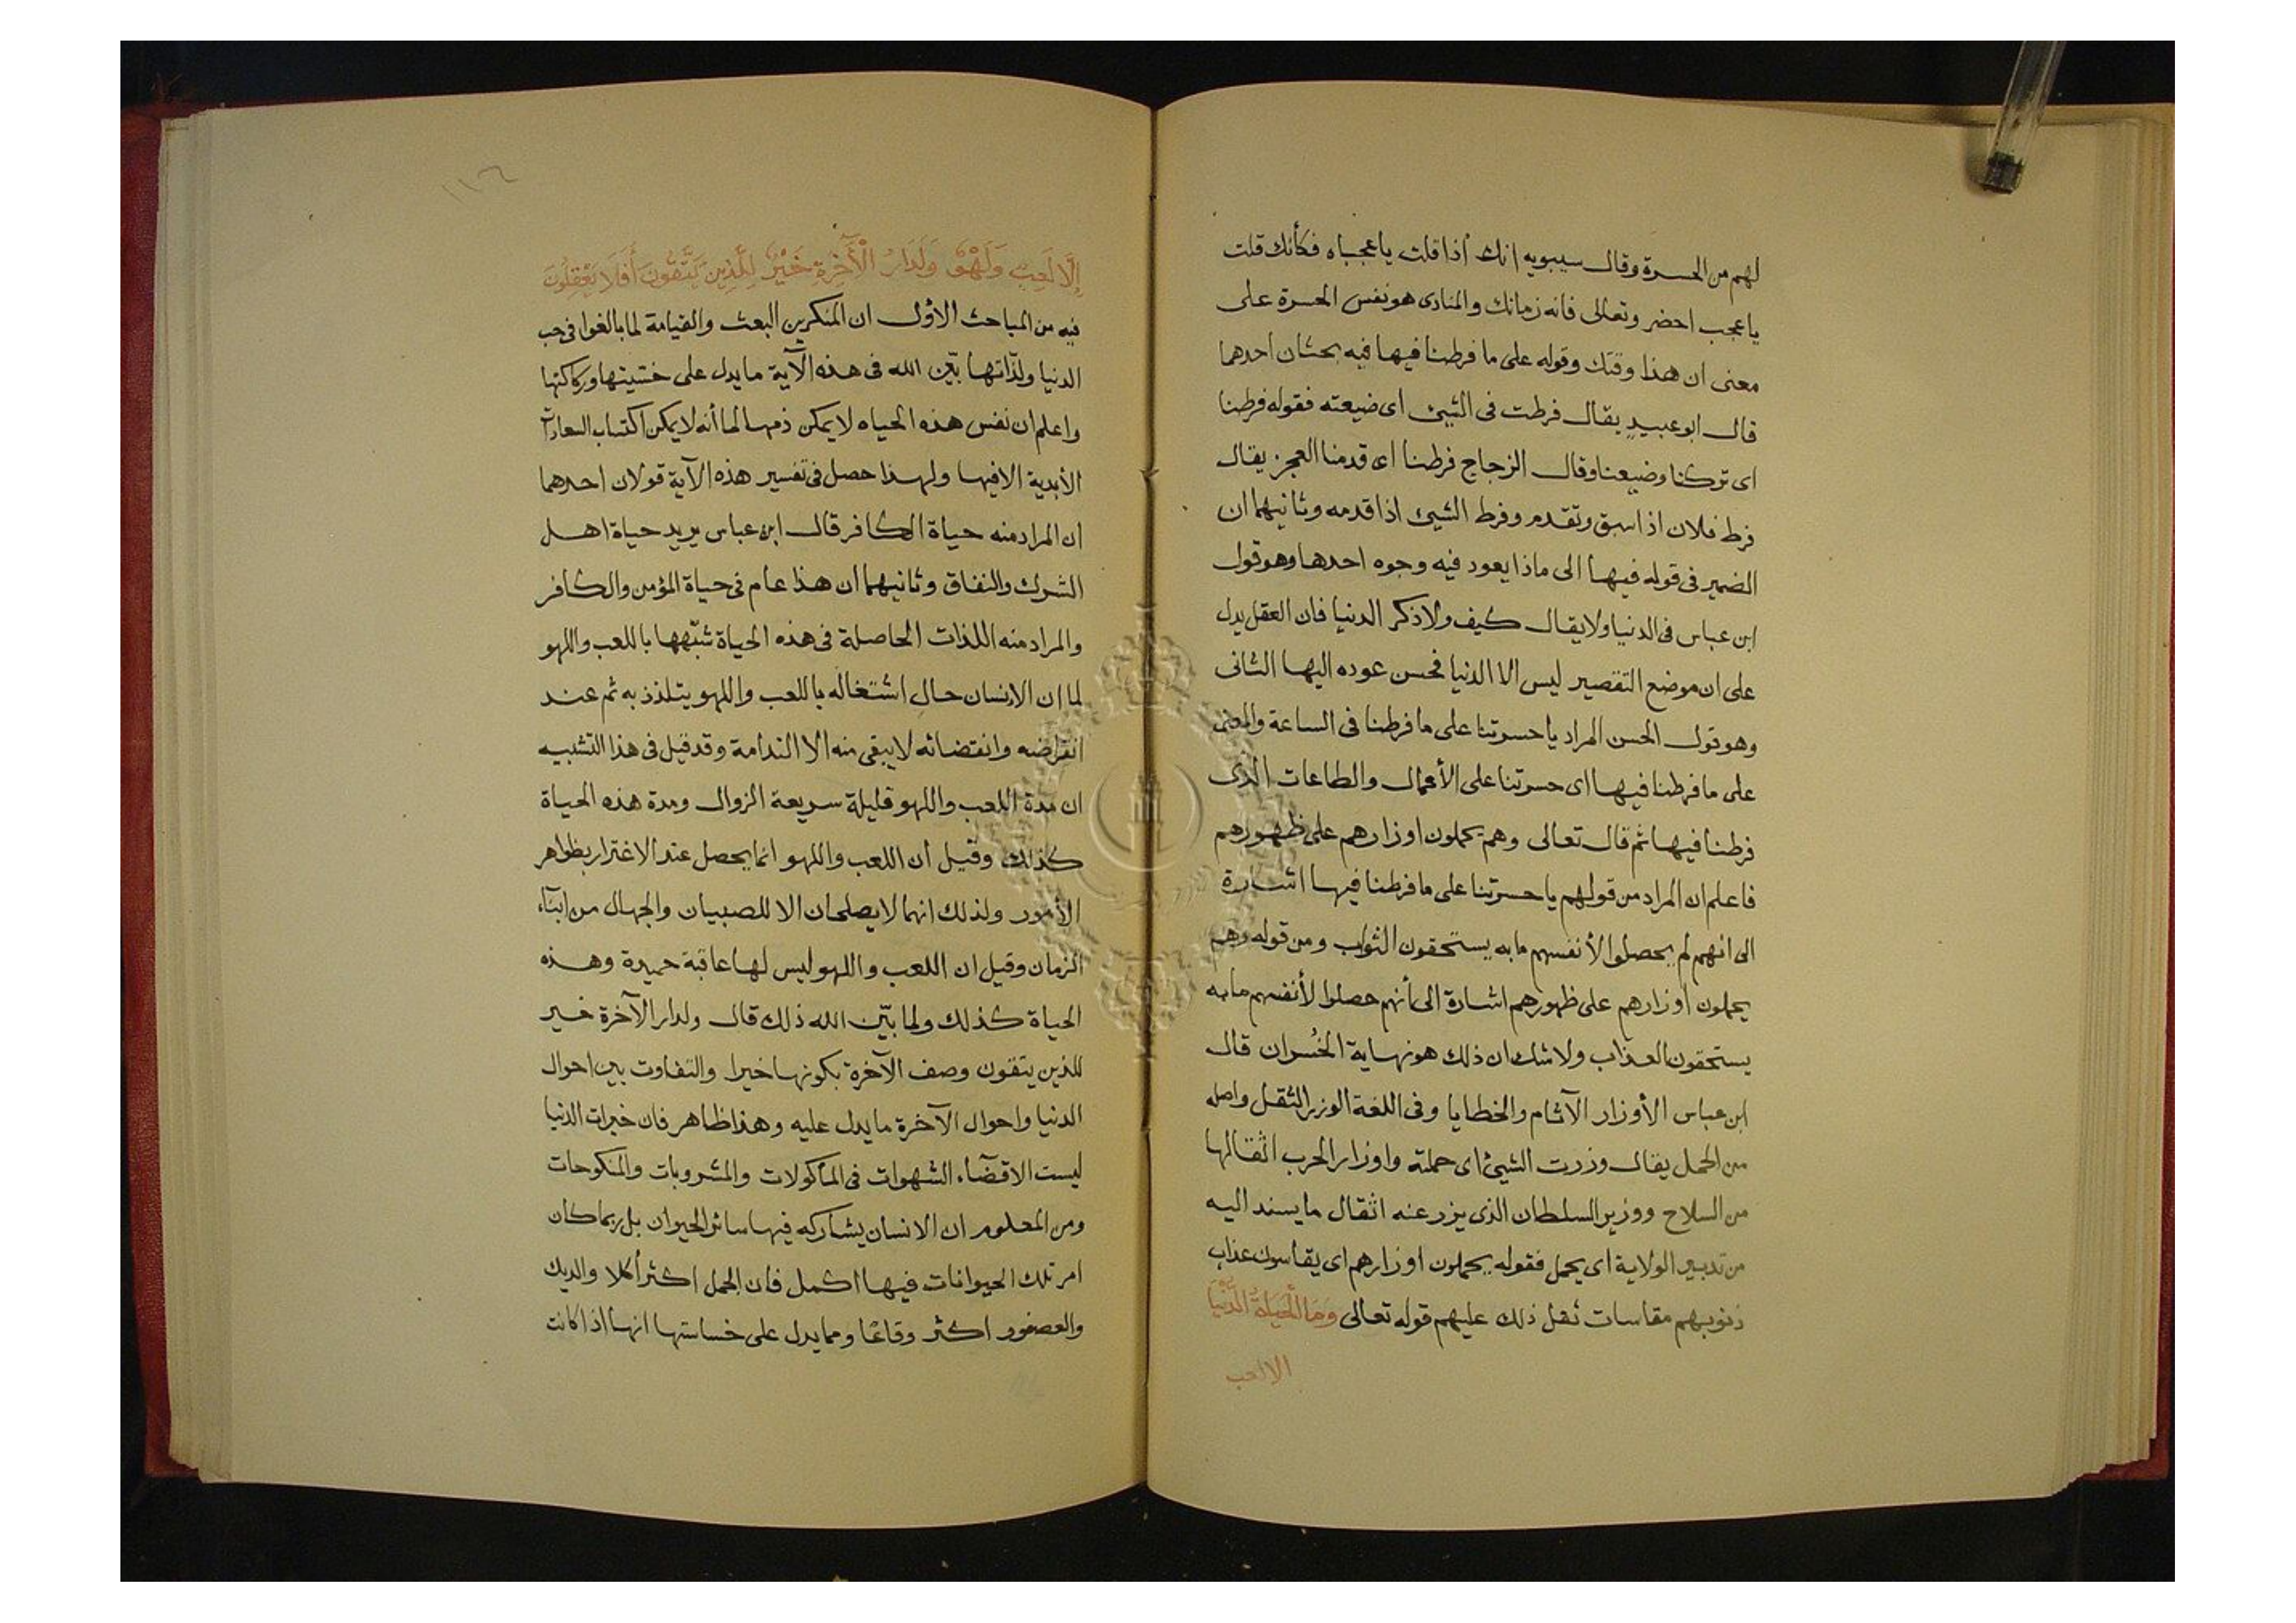 لهم من الحسرة وقال سيبويه انك اذا قلت يا عجباه فكأنك قلت
يا عجب احضر وتعالى فانه زمانك والمنادى هو نفس الحسرة على
معنى ان هذا وقتك وقوله على ما فرطنا فيها فيه بحثان احدهما
قال ابو عبيد يقال فرطت فى الشيئ اى ضيعته فقوله فرطنا
اى تركنا وضيعنا وقال الزجاج فرطنا اى قدمنا العجز يقال
فرط فلان اذا سبق وتقدم وفرط الشيئ اذا قدمه وثانيهما ان
الضمير فى قوله فيها الى ماذا يعود فيه وجوه احدها وهو قول
ابن عباس فى الدنيا ولا يقال كيف ولا ذكر الدنيا فان العقل يدل
على ان موضع التقصير ليس الا الدنيا فحسن عوده اليها الثانى
وهو قول الحسن المراد يا حسرتنا على ما فرطنا فى الساعة والمعنى
على ما فرطنا فيها اى حسرتنا على الأعمال والطاعات الذى
فرطنا فيها ثم قال تعالى وهم يحملون اوزارهم على ظهورهم
فاعلم ان المراد من قولهم يا حسرتنا على ما فرطنا فيها اشارة
الى انهم لم يحصلوا لأنفسهم ما به يستحقون الثواب ومن قوله وهم
يحملون اوزارهم على ظهورهم اشارة الى أنهم حصلوا لأنفسهم ما به
يستحقون العذاب ولا شك ان ذلك هو نهاية الخُسران قال
ابن عباس الأوزار الآثام والخطايا وفى اللغة الوزر الثقل واصله
من الحمل يقال وزرت الشيئ اى حملته واوزار الحرب اثقالها
من السلاح ووزير السلطان الذى يزر عنه اثقال ما يسند اليه
من تدبير الولاية اى يحمل فقوله يحملون اوزارهم اى يقاسون عذاب
ذنوبهم مقاسات ثقل ذلك عليهم قوله تعالى وَمَا الْحَيٰوةُ الدُّنْيَا
الا لعب
١١٦
إِلَّا لَعِبٌ وَلَهْوٌ وَلَدَارُ الْآخِرَةِ خَيْرٌ لِلَّذِينَ يَتَّقُونَ أَفَلَا يَعْقِلُونَ
فيه من المباحث الأول ان المنكرين البعث والقيامة لما بالغوا فى حب
الدنيا ولذّاتها بيّن الله فى هذه الآية ما يدل على خسّيتها وركاكتها
واعلم ان نفس هذه الحياه لا يمكن ذمها لما أنه لا يمكن اكتساب السعادات
الأبدية الا فيها ولهذا حصل فى تفسير هذه الآية قولان احدهما
ان المراد منه حياة الكافر قال ابن عباس يريد حياة اهل
الشرك والنفاق وثانيهما ان هذا عام فى حياة المؤمن والكافر
والمراد منه اللذات الحاصلة فى هذه الحياة شبّهها باللعب واللهو
لما ان الإنسان حال اشتغاله باللعب واللهو يتلذذ به ثم عند
انقراضه وانقضائه لا يبقى منه الا الندامة وقد قيل فى هذا التشبيه
ان مدة اللعب واللهو قليلة سريعة الزوال ومدة هذه الحياة
كذلك وقيل أن اللعب واللهو انما يحصل عند الاغترار بظواهر
الأمور ولذلك انهما لا يصلحان الا للصبيان والجهال من ابنآء
الزمان وقيل ان اللعب واللهو ليس لها عاقبة حميدة وهذه
الحياة كذلك ولما بيّن الله ذلك قال ولدار الآخرة خير
للذين يتقون وصف الآخرة بكونها خيرا والتفاوت بين احوال
الدنيا واحوال الآخرة ما يدل عليه وهذا ظاهر فان خيرات الدنيا
ليست الا قضآء الشهوات فى المأكولات والمشروبات والمنكوحات
ومن المعلوم ان الانسان يشاركه فيها سائر الحيوان بل ربما كان
امر تلك الحيوانات فيها اكمل فان الجمل اكثر أكلا والديك
والعصفور اكثر وقاعًا ومما يدل على خساستها انها اذا كانت